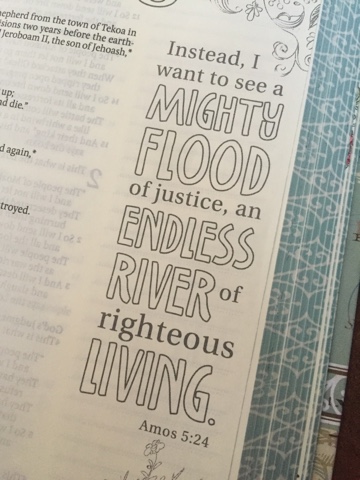 hepherd from the town of Tekoa in
sions two years before the earth-
Jeroboam II, the son of Jehoash,*
up;
nd die."
d again,*
troyed.
Instead, I
want to see a
MIGHTY
FLOOD
of justice, an
ENDLESS
RIVER of
righteous
LIVING.
Amos 5:24